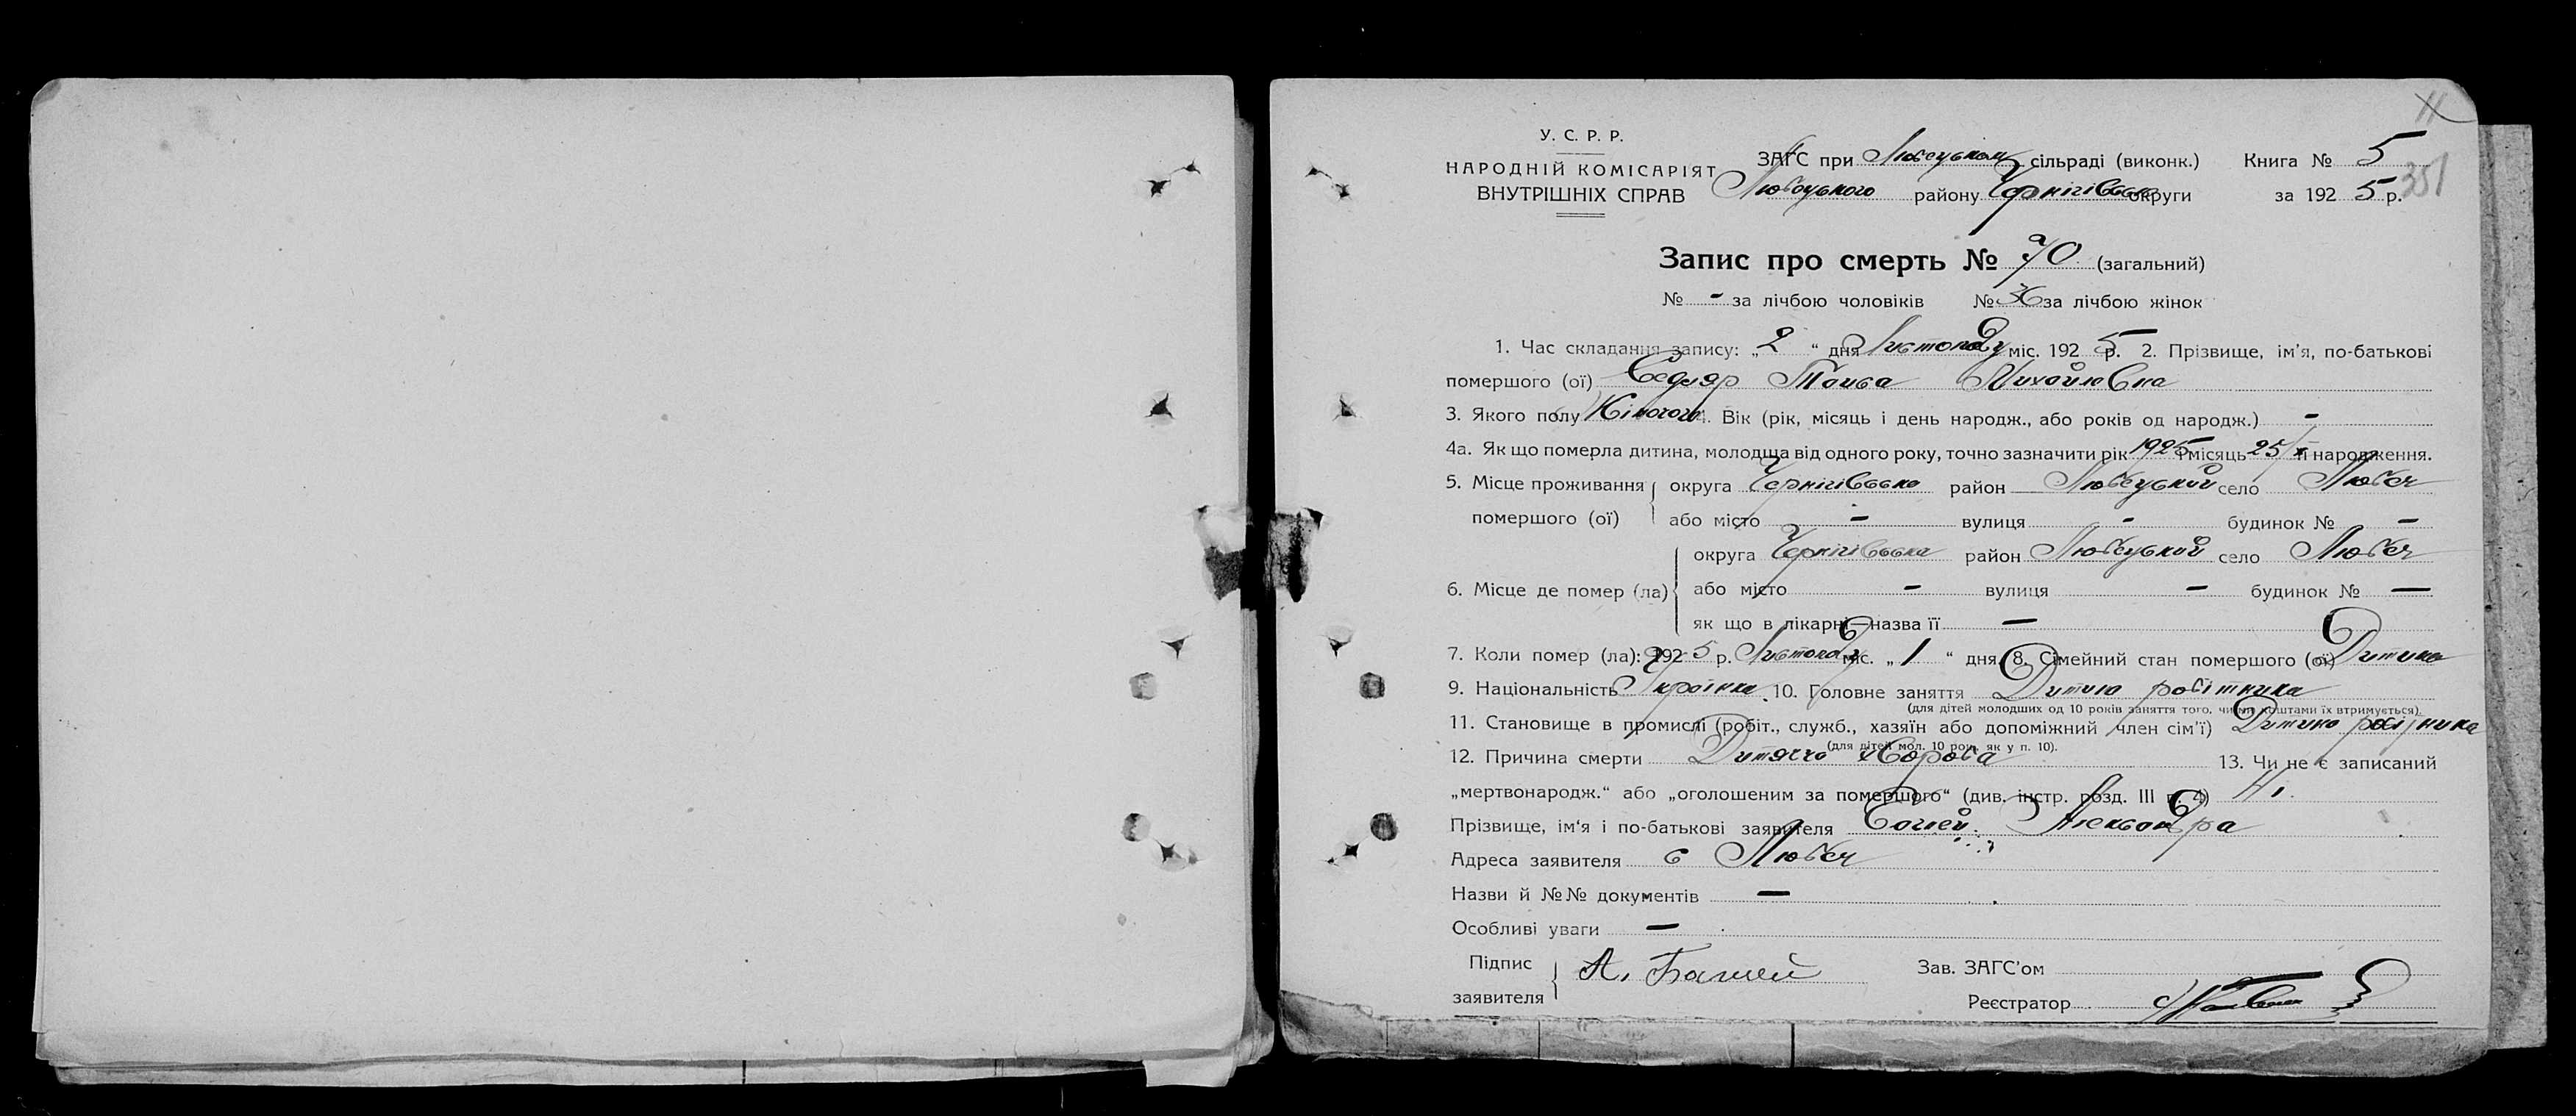 11
У. С. Р. Р.
НАРОДНІЙ КОМІСАРІЯТ
ВНУТРІШНІХ СПРАВ
ЗАГС при Любецьком сільраді (виконк.) Книга № 5
Любецького району Чернігівсько округи за 1925 р. 351
Запис про смерть № 70 (загальний)
№ - за лічбою чоловіків № 36 за лічбою жінок
1. Час складання запису: „2“ дня Листопаду міс. 1925 р. 2. Прізвище, ім'я, по-батькові
помершого (ої) Седляр Михайловна
3. Якого полу Жіночого 4. Вік (рік, місяць і день народж., або років од народж.) -
4а. Як що померла дитина, молодша від одного року, точно зазначити рік 1925 місяць 25/X її народження.
5. Місце проживання округа Чернігівсько район Любецький село Любеч
помершого (ої) або місто - вулиця - будинок № -
округа Чернігівська район Любецький село Любеч
6. Місце де помер (ла) або місто - вулиця - будинок № —
як що в лікарні—назва її —
7. Коли помер (ла): 1925 р. Листопаду міс. „1“ дня. 8. Сімейний стан помершого (ої) Дитина
9. Національність Українка 10. Головне заняття Дитина робітника
(для дітей молодших од 10 років заняття того, чиїми коштами їх втримується).
11. Становище в промислі (робіт., служб., хазяїн або допоміжний член сім'ї) Дитина робітника
(для дітей мол. 10 рок. як у п. 10).
12. Причина смерти Дитяча хороба 13. Чи не є записаний
„мертвонародж.“ або „оголошеним за помершого“ (див. інстр. розд. III п. 4) Ні.
Прізвище, ім'я і по-батькові заявителя Александра
Адреса заявителя с Любеч
Назви й №№ документів —
Особливі уваги —
Підпис
заявителя А. Башей
Зав. ЗАГС'ом
Реєстратор